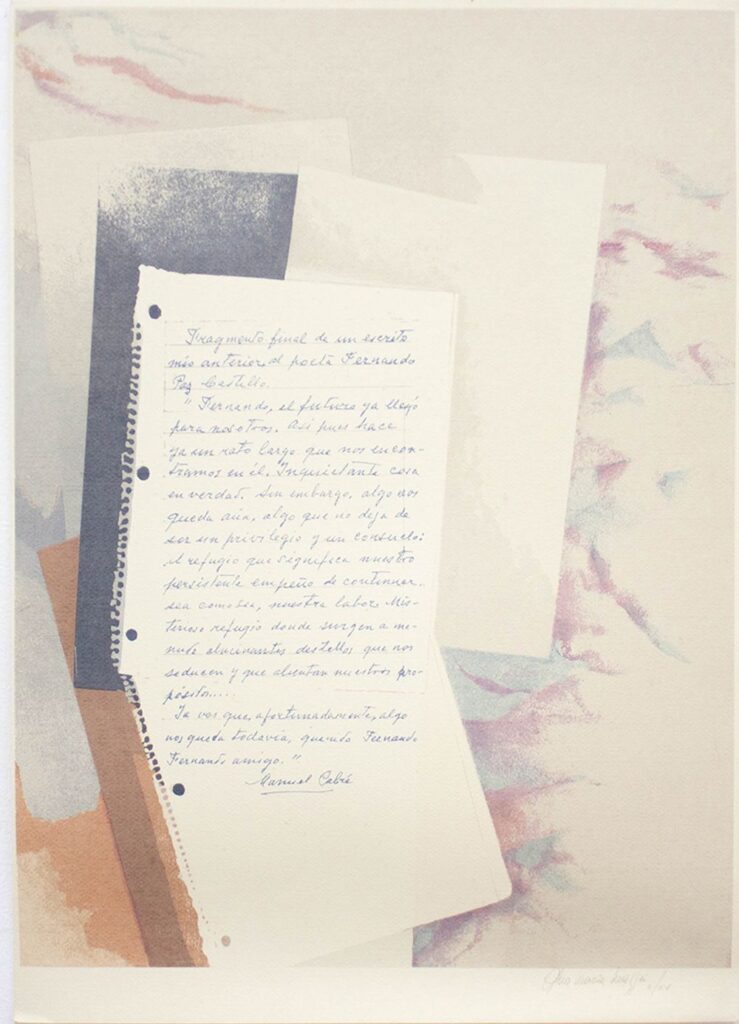 Fragmento final de un escrito
mío anterior, al poeta Fernando
Paz Castillo.
" Fernando, el futuro ya llegó
para nosotros. Así pues hace
ya un rato largo que nos encon-
tramos en él. Inquietante cosa
en verdad. Sin embargo, algo nos
queda aún, algo que no deja de
ser un privilegio y un consuelo:
el refugio que significa nuestro
persistente empeño de continuar,
sea como sea, nuestra labor. Mis-
terioso refugio donde surgen a me-
nudo alucinantes destellos que nos
seducen y que alientan nuestros pro-
pósitos.....
Ya ves que, afortunadamente, algo
nos queda todavía, querido Fernando
Fernando amigo. "
Manuel Cabré